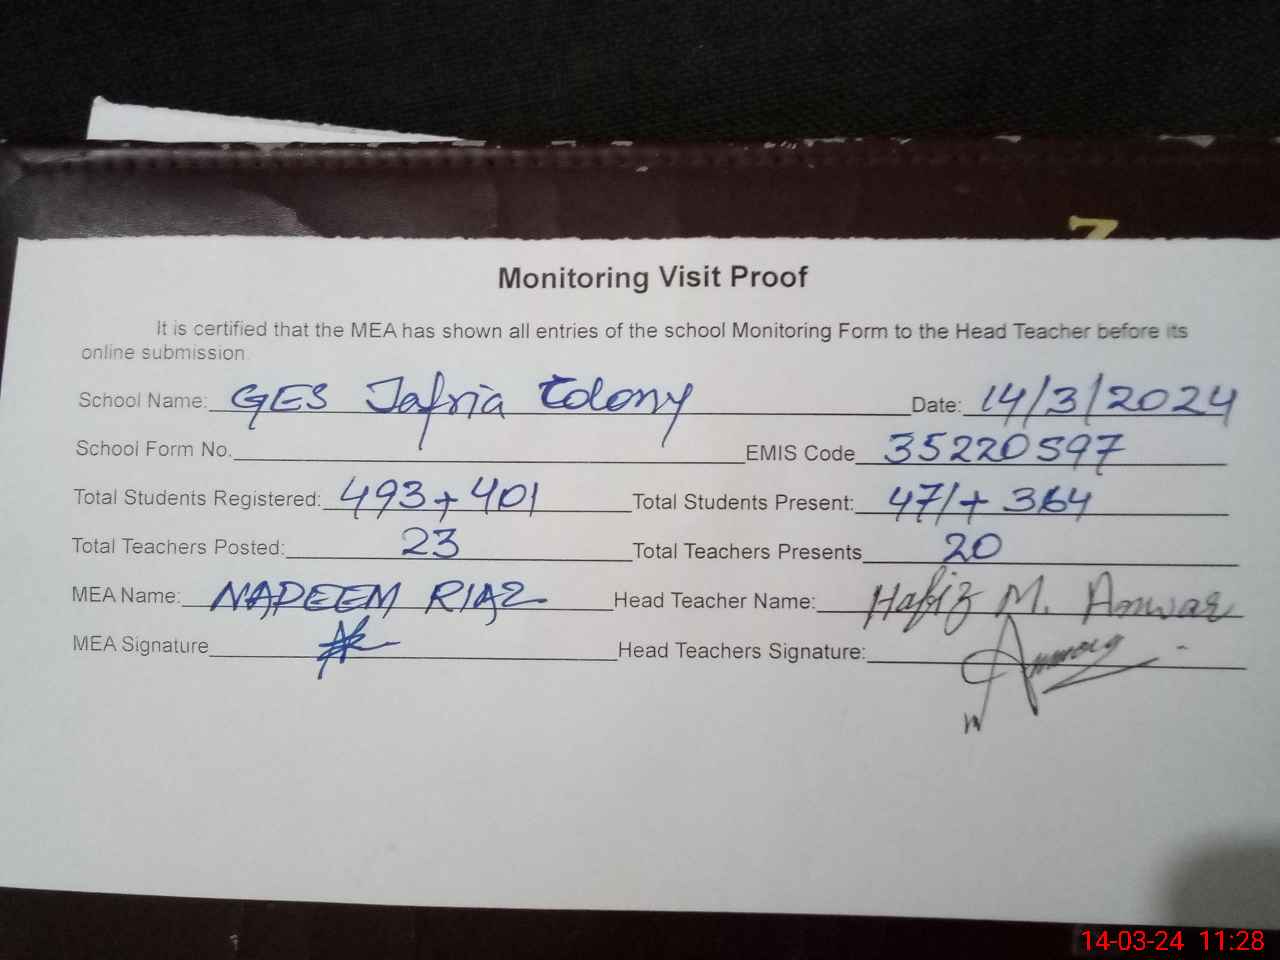 Z
Monitoring Visit Proof
It is certified that the MEA has shown all entries of the school Monitoring Form to the Head Teacher before its
online submission.
School Name: GES Jafria Colony Date: 14/3/2024
School Form No. EMIS Code 35220597
Total Students Registered: 493+401 Total Students Present: 471+364
Total Teachers Posted: 23 Total Teachers Presents 20
MEA Name: NADEEM RIAZ Head Teacher Name: Hafiz M. Anwar
MEA Signature Head Teachers Signature:
14-03-24 11:28